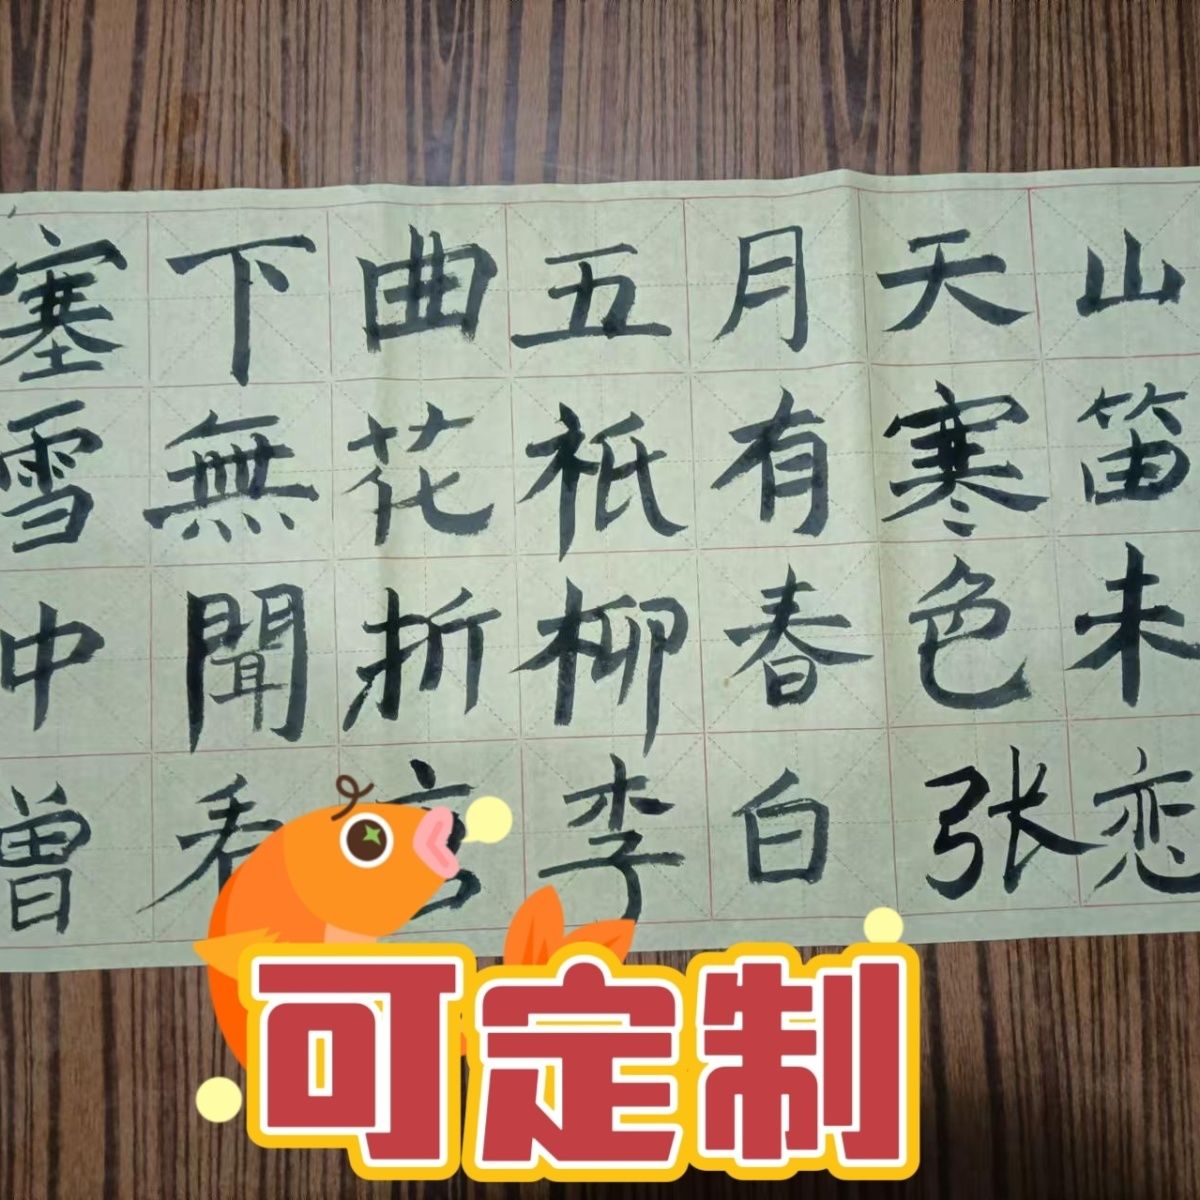 塞下曲五月天山
雪無花衹有寒笛
中聞折柳春色未
曾看李白张恋
可定制